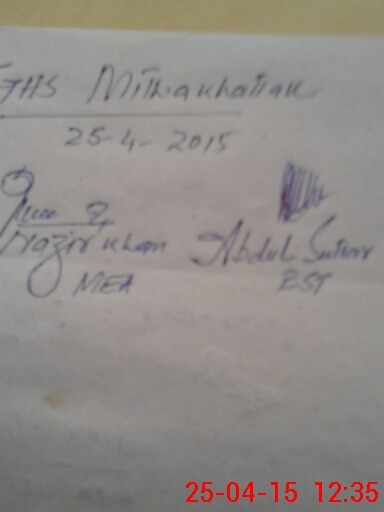 GHS Mithakhattak
25-4-2015
Nazir Khan
Abdul Sattar
MEA
PST
25-04-15 12:35